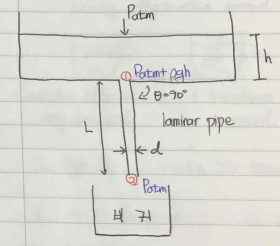 Patm
h
① Patm + ρgh
θ=90°
L
laminar pipe
d
② Patm